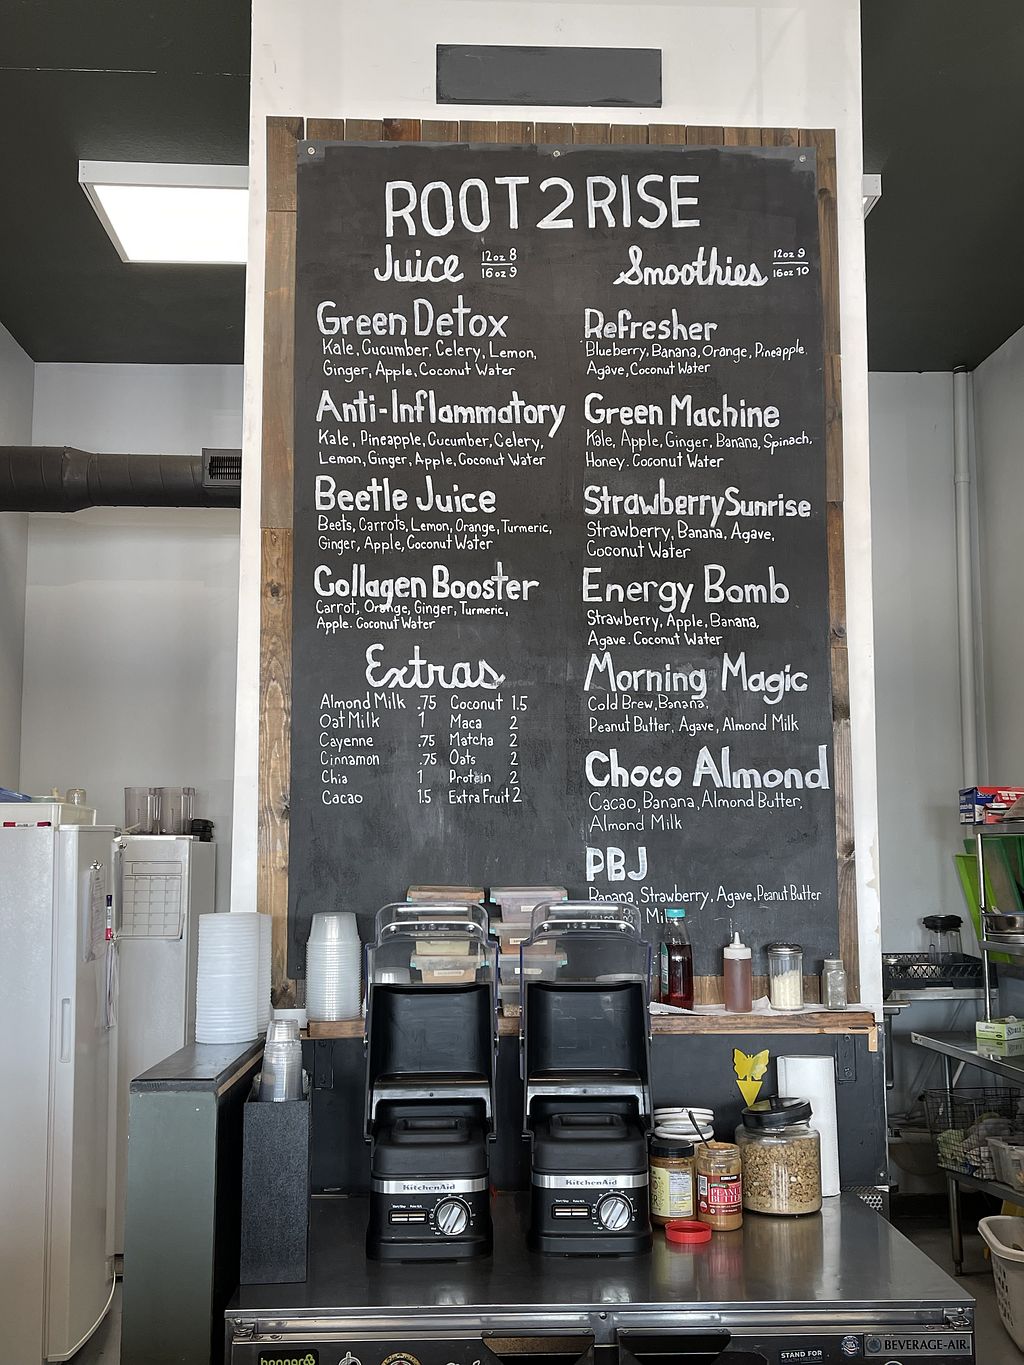 ROOT 2 RISE
Juice 12oz 8
16oz 9
Green Detox
Kale, Cucumber, Celery, Lemon,
Ginger, Apple, Coconut Water
Anti-Inflammatory
Kale, Pineapple, Cucumber, Celery,
Lemon, Ginger, Apple, Coconut Water
Beetle Juice
Beets, Carrots, Lemon, Orange, Turmeric,
Ginger, Apple, Coconut Water
Collagen Booster
Carrot, Orange, Ginger, Turmeric,
Apple. Coconut Water
Extras
Almond Milk .75 Coconut 1.5
Oat Milk 1 Maca 2
Cayenne .75 Matcha 2
Cinnamon .75 Oats 2
Chia 1 Protein 2
Cacao 1.5 Extra Fruit 2
Smoothies 12oz 9
16oz 10
Refresher
Blueberry, Banana, Orange, Pineapple
Agave, Coconut Water
Green Machine
Kale, Apple, Ginger, Banana, Spinach,
Honey. Coconut Water
Strawberry Sunrise
Strawberry, Banana, Agave,
Coconut Water
Energy Bomb
Strawberry, Apple, Banana,
Agave. Coconut Water
Morning Magic
Cold Brew, Banana,
Peanut Butter, Agave, Almond Milk
Choco Almond
Cacao, Banana, Almond Butter,
Almond Milk
PBJ
Banana, Strawberry, Agave, Peanut Butter
KitchenAid
KitchenAid
PEANUT
BUTTER
BEVERAGE-AIR
STAND FOR